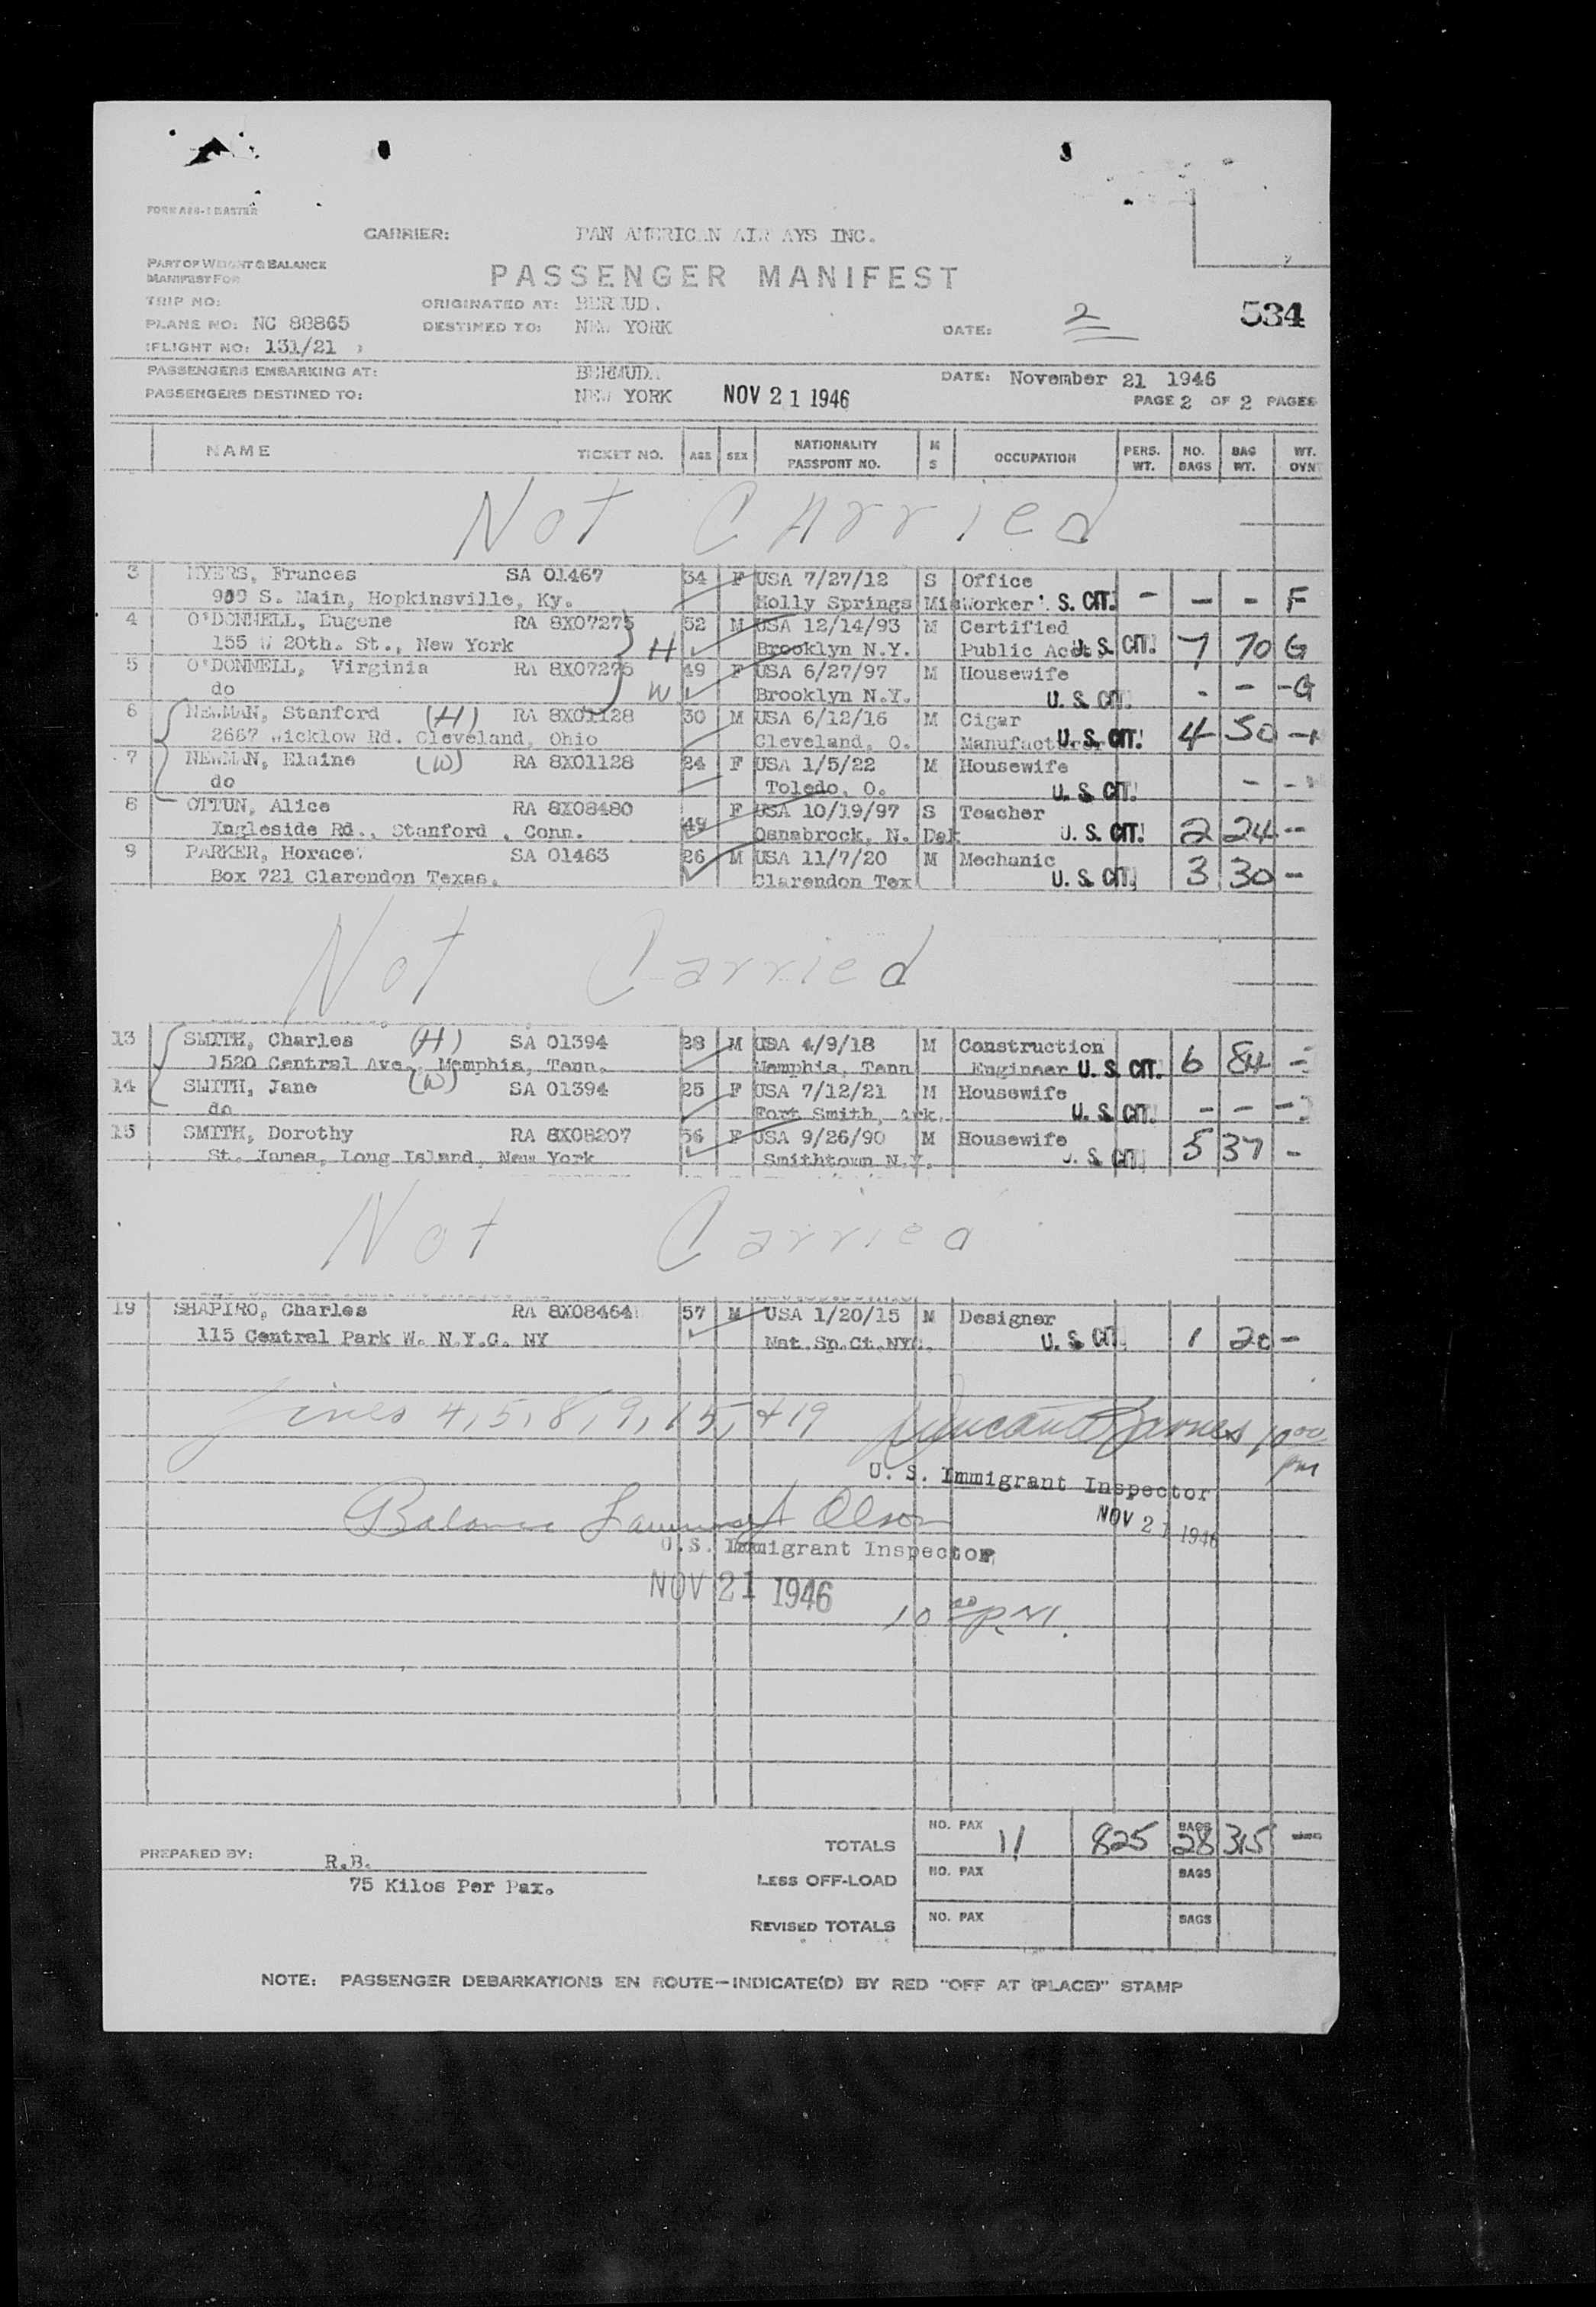 FORM AFS-1 MASTER
CARRIER: PAN AMERICAN AIR AYS INC.
PART OF WEIGHT & BALANCE
MANIFEST FOR
PASSENGER MANIFEST
TRIP NO: ORIGINATED AT: BERMUDA
2 534
PLANE NO: NC 88865 DESTINED TO: NEW YORK DATE:
(FLIGHT NO: 131/21 )
PASSENGERS EMBARKING AT: BERMUDA DATE: November 21 1946
PASSENGERS DESTINED TO: NEW YORK NOV 21 1946 PAGE 2 OF 2 PAGES
NAME TICKET NO. AGE SEX NATIONALITY PASSPORT NO. M S OCCUPATION PERS. WT. NO. BAGS BAG WT. WT. OVN
Not Carried
3 MYERS, Frances SA 01467 34 F USA 7/27/12 S Office
909 S. Main, Hopkinsville, Ky. Holly Springs Mis Worker S. CIT. - - - F
4 O'DONNELL, Eugene RA 8X07275 52 M USA 12/14/93 M Certified
155 W 20th. St., New York H Brooklyn N.Y. Public Acct U. S. CIT. 7 70 G
5 O'DONNELL, Virginia RA 8X07276 49 F USA 6/27/97 M Housewife
do W Brooklyn N.Y. U. S. CIT. - - -G
6 NEWMAN, Stanford (H) RA 8X01128 30 M USA 6/12/16 M Cigar
2667 Wicklow Rd. Cleveland, Ohio Cleveland, O. Manufacturer U. S. CIT. 4 50 -
7 NEWMAN, Elaine (W) RA 8X01128 24 F USA 1/5/22 M Housewife
do Toledo, O. U. S. CIT. - -
8 OTTUN, Alice RA 8X08480 49 F USA 10/19/97 S Teacher
Ingleside Rd., Stanford , Conn. Osnabrock, N. Dak U. S. CIT. 2 24 --
9 PARKER, Horace SA 01463 26 M USA 11/7/20 M Mechanic
Box 721 Clarendon Texas. Clarendon Tex U. S. CIT. 3 30 -
Not Carried
13 SMITH, Charles (H) SA 01394 28 M USA 4/9/18 M Construction
1520 Central Ave., Memphis, Tenn. Memphis, Tenn Engineer U. S. CIT. 6 84 -
14 SMITH, Jane (W) SA 01394 25 F USA 7/12/21 M Housewife
do Fort Smith, Ark. U. S. CIT. - - -
15 SMITH, Dorothy RA 8X08207 56 F USA 9/26/90 M Housewife
St. James, Long Island, New York Smithtown N.Y. U. S. CIT. 5 37 -
Not Carried
19 SHAPIRO, Charles RA 8X08464 57 M USA 1/20/15 M Designer
115 Central Park W. N.Y.C. NY Nat.Sp.Ct.NYC. U. S. CIT. 1 20 -
Lines 4, 5, 8, 9, 15, + 19 10 00 pm
U. S. Immigrant Inspector
NOV 21 1946
Balance Olson
U.S. Immigrant Inspector
NOV 21 1946
10 00 P.M.
TOTALS NO. PAX 11 825 BAGS 28 315 -
PREPARED BY: R.B.
75 Kilos Per Pax.
LESS OFF-LOAD NO. PAX BAGS
REVISED TOTALS NO. PAX BAGS
NOTE: PASSENGER DEBARKATIONS EN ROUTE—INDICATE(D) BY RED "OFF AT (PLACE)" STAMP